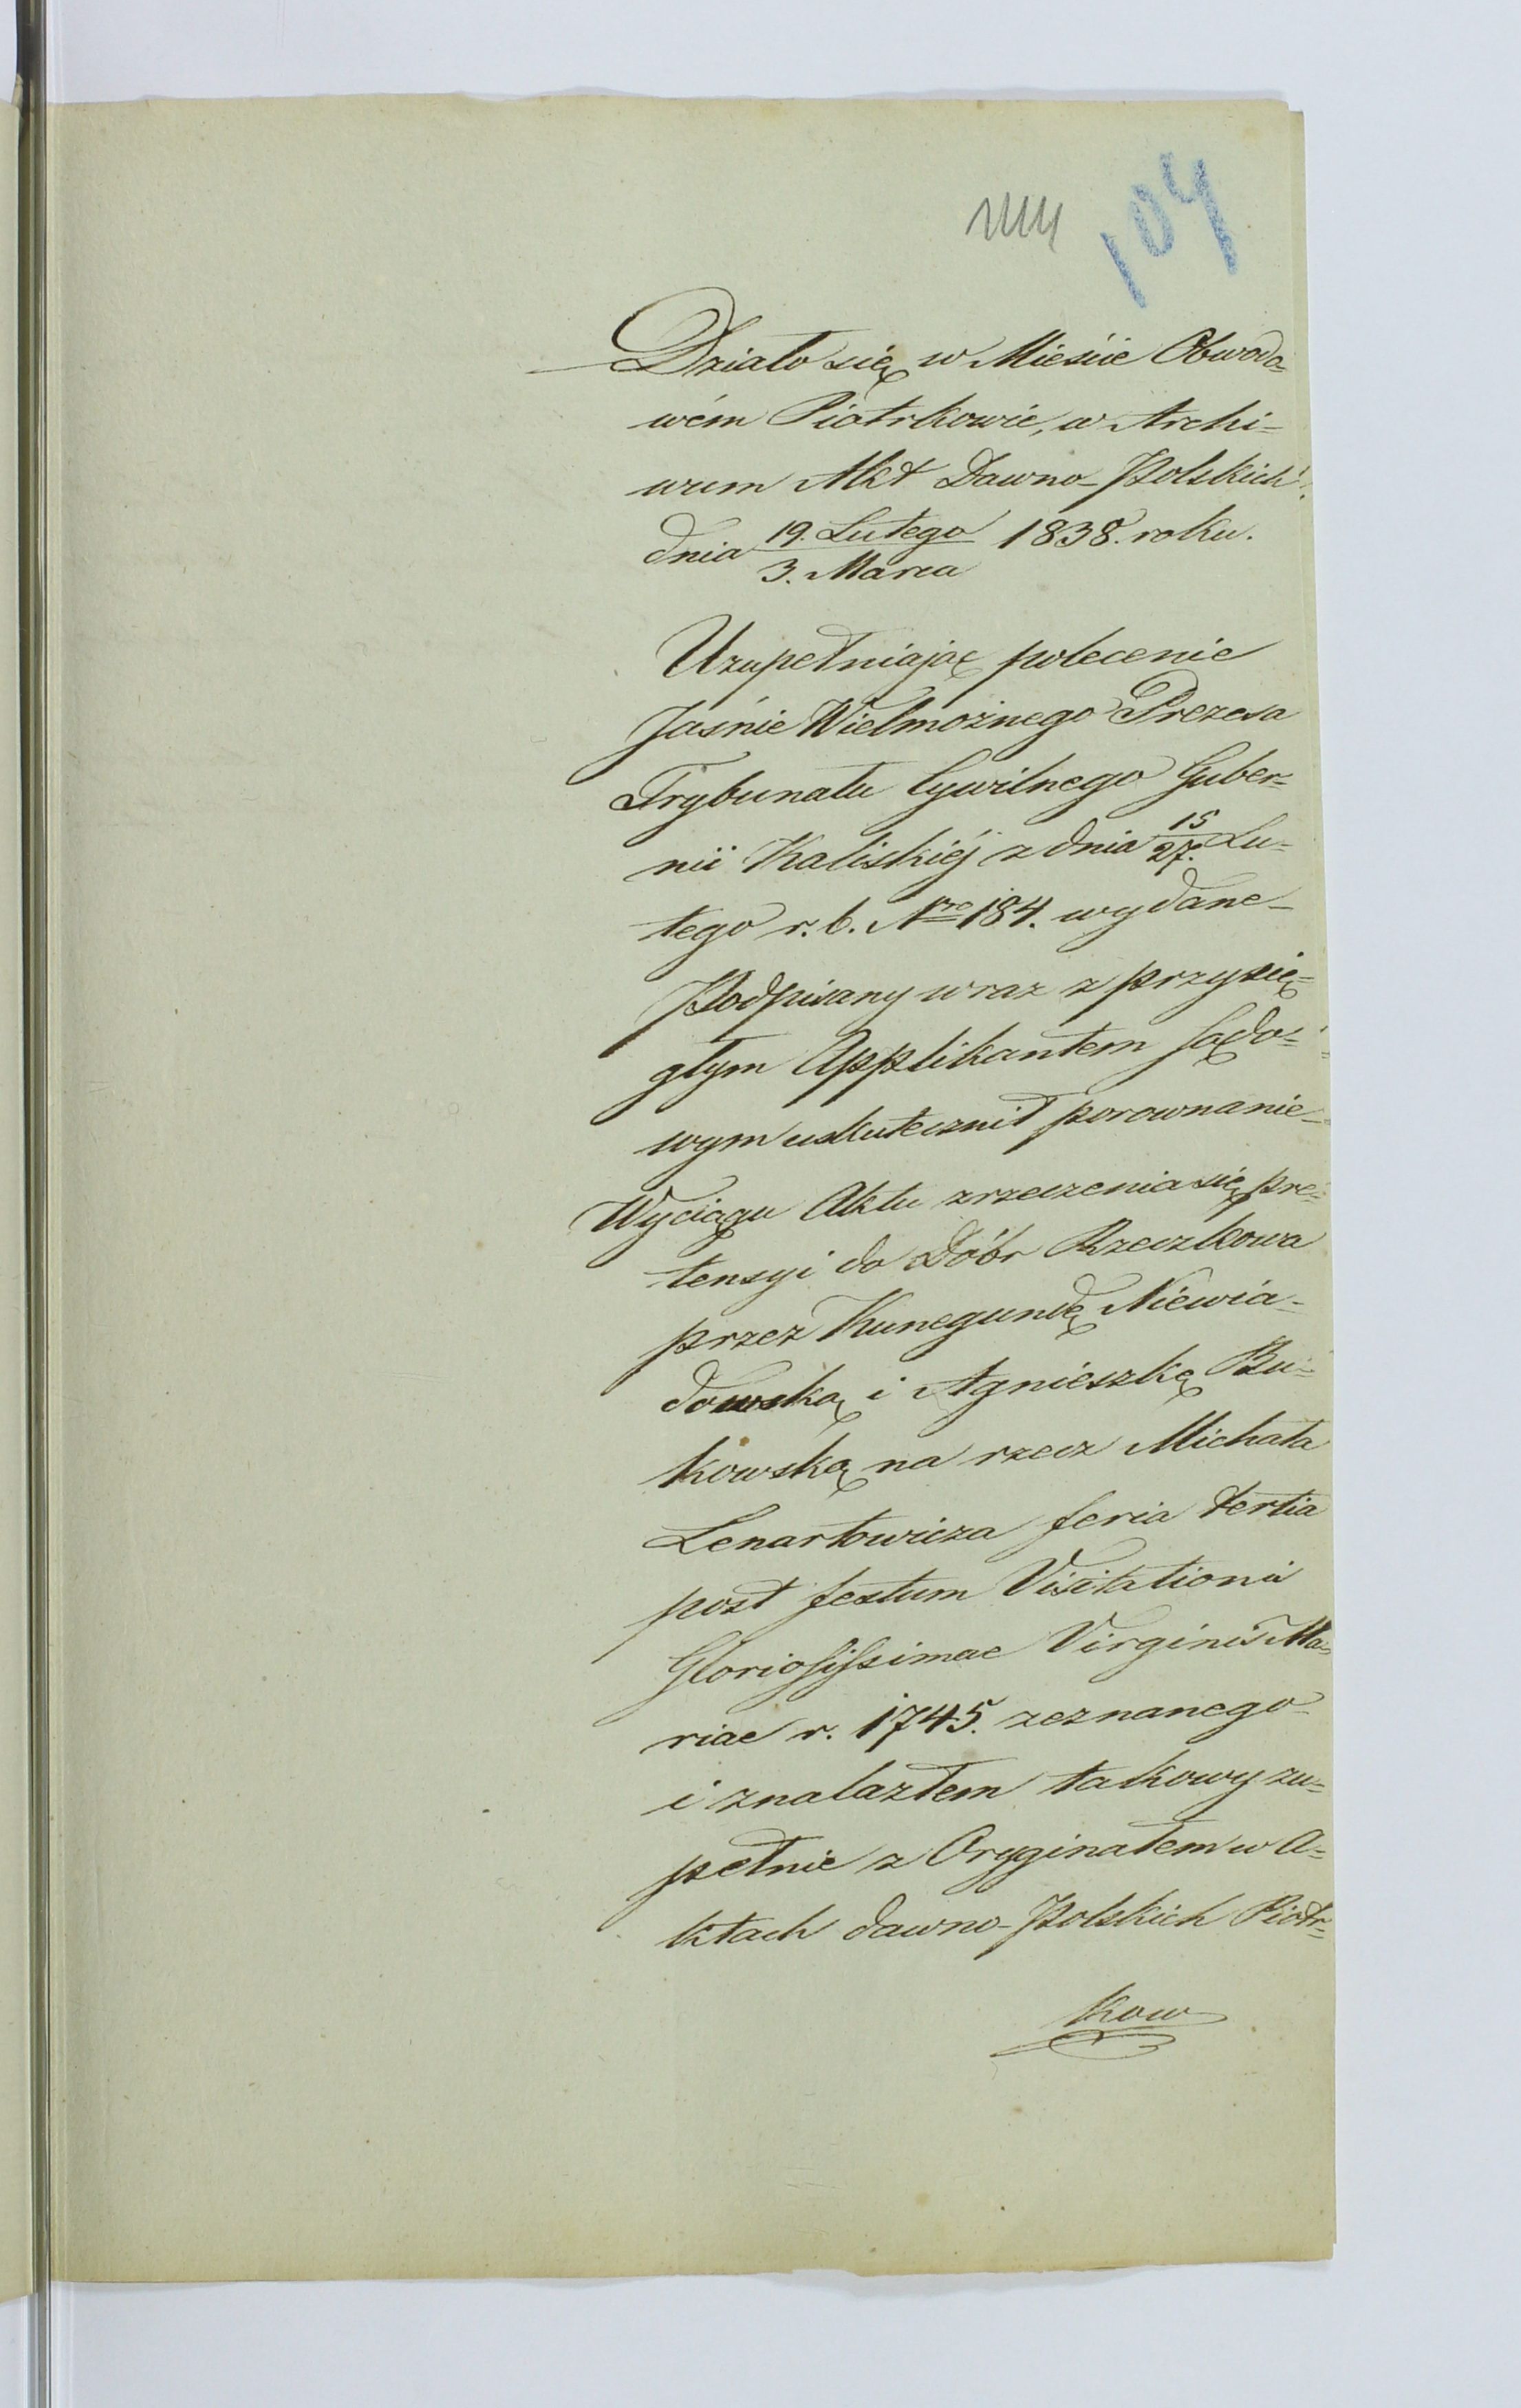 104
Działo się w Mieście Obwodo=
wém Piotrkowie, w Archi=
wum Akt Dawno-Polskich
dnia 19. Lutego / 3. Marca 1838. roku.
Uzupełniając polecenie
Jaśnie Wielmożnego Prezesa
Trybunału Cywilnego Guber=
nii Kaliskiéj z dnia 15/27. Lu=
tego r. b. Nro 184. wydane_
Podpisany wraz z przysię=
głym Applikantem sądo=
wym uskutecznił porownanie_
Wyciągu Aktu zrzeczenia się pre=
tensyi do Dóbr Rzeczkowa
przez Kunegundę Niewia=
dowską i Agnieszkę Bu=
kowską na rzecz Michała
Lenartowicza feria tertia
post festum Visitationis
Gloriosissimae Virginis Ma=
riae r. 1745. zeznanego_
i znalazłem takowy zu=
pełnie z Oryginałem w A=
ktach dawno-Polskich Piotr=
kow